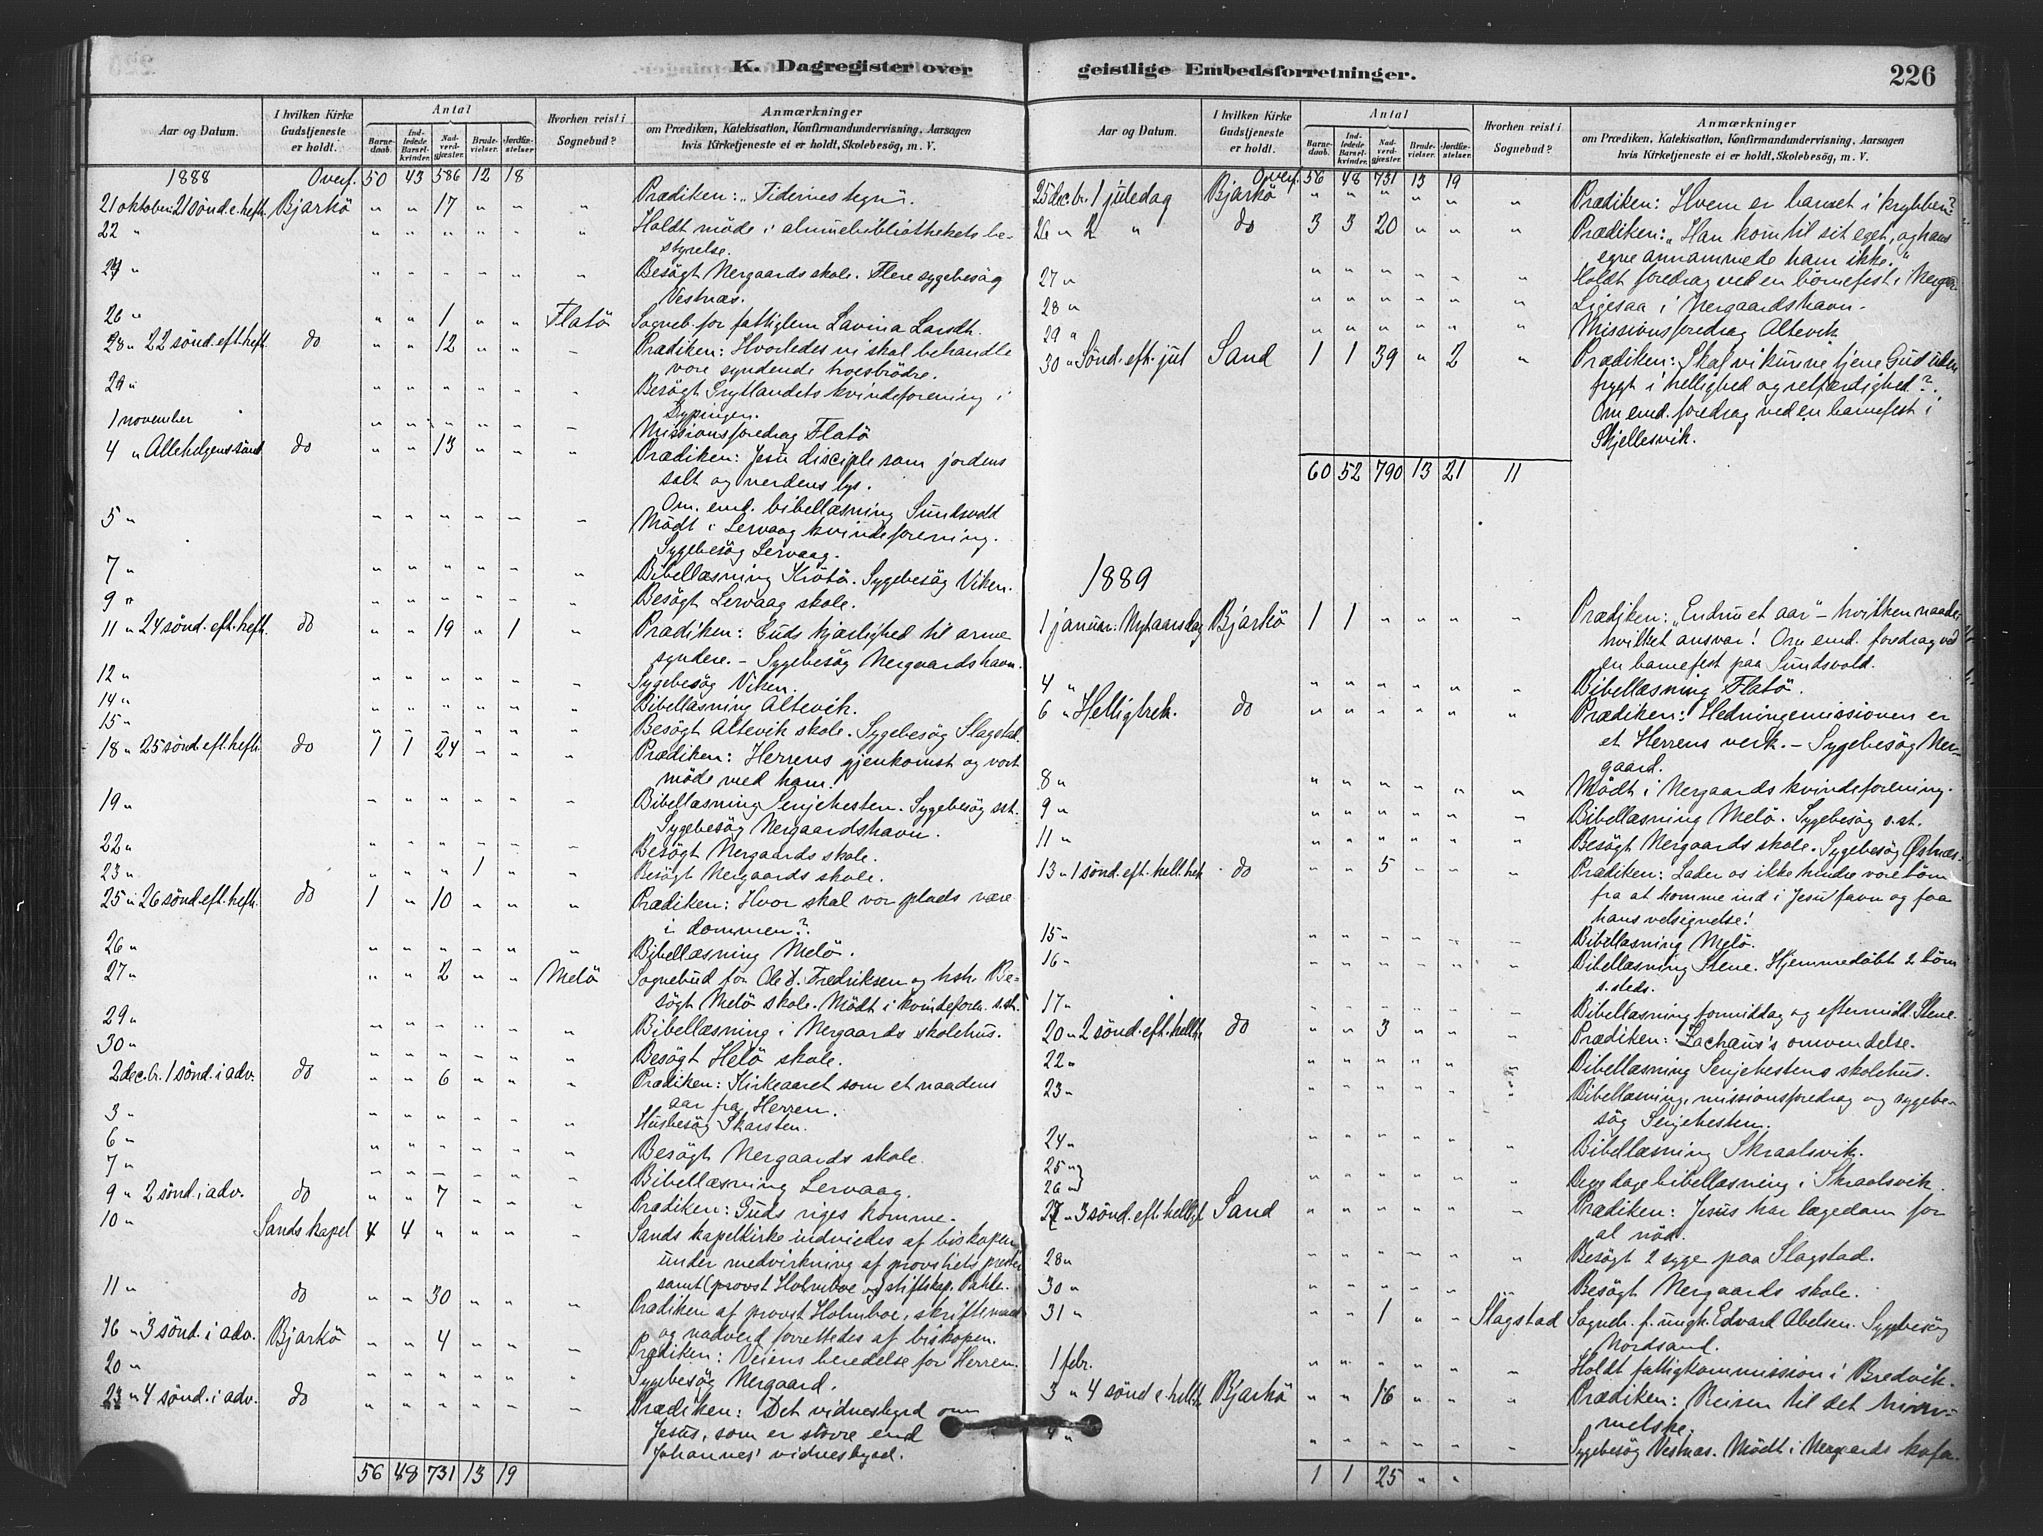 K. Dagregister over
Aar og Datum.
I hvilken Kirke Gudstjeneste er holdt.
Antal
Barnedaab.
Indledede Barselkvinder.
Nadverdgjæster.
Brudevielser.
Jordfæstelser.
Hvorhen reist i Sognebud?
Anmærkninger
om Prædiken, Katekisation, Konfirmandundervisning, Aarsagen
hvis Kirketjeneste ei er holdt, Skolebesøg, m. V.
1888 Overf. 50 43 586 12 18
21 oktober 21 sönd. e. heft. Bjarkö " " 17 " " " Prædiken: "Tidernes tegn".
22 " " " " " " " Holdt möde i almuebibliothekets be-
styrelse.
24 " " " " " " " Besögt Nergaards skole. Flere sygebesög
Vestnæs.
26 " " " 1 " " Flatö Sogneb. for fattiglem Lavina Larsdt.
28 " 22 sönd. eft. heft. do " " 12 " " " Prædiken: Hvorledes vi skal behandle
vore syndende trosbrödre.
29 " " " " " " " Besögt Grytlandets kvindeforening i
Dypingen.
1 november " " " " " " Missionsforedrag Flatö
4 " Allehelgens sönd. do " " 13 " " " Prædiken: Jesu disciple som jordens
salt og verdens lys.
Om. emd. bibellæsning Sundsvold
5 " " " " " " " Mödt i Lervaag kvindeforening.
Sygebesög Lervaag.
7 " " " " " " " Bibellæsning Krötö. Sygebesög Viken.
9 " " " " " " " Besögt Lervaag skole.
11 " 24 sönd. eft. heft. do " " 19 " 1 " Prædiken: Guds kjærlighed til arme
syndere. - Sygebesög Nergaardshavn.
12 " " " " " " " Sygebesög Viken.
14 " " " " " " " Bibellæsning Altevik.
15 " " " " " " " Besögt Altevik skole. Sygebesög Slagstad.
18 " 25 sönd. eft. heft. do 1 1 24 " " " Prædiken: Herrens gjenkomst og vort
möde med ham.
19 " " " " " " " Bibellæsning Senjehesten. Sygebesög sst.
Sygebesög Nergaardshavn.
22 " " " " " " " Besögt Nergaards skole.
23 " " " " 1 " " Besögt Nergaards skole.
25 " 26 sönd. eft. heft. do 1 " 10 " " " Prædiken: Hvor skal vor plads være
i dommen?
26 " " " " " " " Bibellæsning Melö.
27 " " " 2 " " Melö Sognebud for Ole D. Fredriksen og hstr. Be-
sögt Melö skole. Mödt i kvindeforen. s.st.
29 " " " " " " " Bibellæsning i Nergaards skolehus.
30 " " " " " " " Besögt Helö skole.
2 decbr. 1 sönd. i adv. do " " 6 " " " Prædiken: Kirkeaaret som et naadens
aar fra Herren.
3 " " " " " " " Husbesög Skarsten.
6 " " " " " " " Besögt Nergaards skole.
7 " " " " " " " Bibellæsning Lervaag.
9 " 2 sönd. i adv. do " " 7 " " " Prædiken: Guds riges komme.
10 " Sands kapel 4 4 " " " " Sands kapelkirke indviedes af biskopen
under medvirkning af provstiets prester
samt (provst Holmboe og) stiftskap. Dahle.
11 " do " " 30 " " " Prædiken af provst Holmboe, skriftemaal
og nadverd forrettedes af biskopen.
16 " 3 sönd. i adv. Bjarkö " " 4 " " " Prædiken: Veiens beredelse for Herren.
20 " " " " " " " Sygebesög Nergaard.
23 " 4 sönd. i adv. do " " " " " " Prædiken: Det vidnesbyrd om
Jesus, som er större end
Johannes' vidnesbyrd.
56 48 731 13 19
geistlige Embedsforretninger.
226
Aar og Datum.
I hvilken Kirke Gudstjeneste er holdt.
Antal
Barnedaab.
Indledede Barselkvinder.
Nadverdgjæster.
Brudevielser.
Jordfæstelser.
Hvorhen reist i Sognebud?
Anmærkninger
om Prædiken, Katekisation, Konfirmandundervisning, Aarsagen
hvis Kirketjeneste ei er holdt, Skolebesøg, m. V.
Overf. 56 48 731 13 19
25 decbr. 1 juledag Bjarkö " " " " " " Prædiken: Hvem er barnet i krybben?
26 " 2 " do 3 3 20 " " " Prædiken: "Han kom til sit eget, og hans
egne annammede ham ikke."
27 " " " " " " " Holdt foredrag ved en börnefest i Nergrd.
28 " " " " " " " Ligesaa i Nergaardshavn.
29 " " " " " " " Missionsforedrag Altevik
30 " Sönd. eft. jul Sand 1 1 39 " 2 " Prædiken: Skal vi kunne tjene Gud uden
frygt i hellighed og retfærdighed?
Om emd. foredrag ved en barnefest i
Skjellesvik.
60 52 790 13 21 11
1889
1 januar: Nytaarsdag Bjarkö 1 1 " " " " Prædiken: "Endnu et aar" - hvilken naade,
hvilket ansvar! Om emd. foredrag ved
en barnefest paa Sundsvold.
4 " " " " " " " Bibellæsning Flatö.
6 " Helligtrek. do " " " " " " Prædiken: Hedningemissionen er
et Herrens verk. - Sygebesög Ner-
gaard.
8 " " " " " " " Mödt i Nergaards kvindeforening.
9 " " " " " " " Bibellæsning Melö. Sygebesög s.st.
11 " " " " " " " Besögt Nergaards skole. Sygebesög Østnæs.
13 " 1 sönd. eft. hell. trek. do " " 5 " " " Prædiken: Lader os ikke hindre vore börn
fra at komme ind i Jesu favn og faa
hans velsignelse!
15 " " " " " " " Bibellæsning Melö.
16 " " " " " " " Bibellæsning Stene. Hjemmedöbt 2 börn
s. steds.
17 " " " " " " " Bibellæsning formiddag og eftermidd. Stene.
20 " 2 sönd. eft. helltr. do " " 3 " " " Prædiken: Zachæus's omvendelse.
22 " " " " " " " Bibellæsning Senjehestens skolehus.
23 " " " " " " " Bibellæsning, missionsforedrag og sygebe-
sög Senjehesten.
24 " " " " " " " Bibellæsning Skraalsvik.
25 "
26 " " " " " " " Begge dage bibellæsning i Skraalsvik.
27 " 3 sönd. eft. helligt. Sand " " " " " " Prædiken: Jesus har lægedom for
al nöd.
28 " " " " " " " Besögt 2 syge paa Slagstad.
30 " " " " " " " Besögt Nergaards skole.
31 " " " 1 " " Slagstad Sogneb. f. ungk. Edvard Abelsen. Sygebesög
Nordsand.
1 febr. " " " " " " Holdt fattigkommission i Bredvik.
3 " 4 sönd e. helltr. Bjarkö " " 16 " " " Prædiken: Reisen til det himm-
melske.
4 " " " " " " " Sygebesög Vestnæs. Mödt i Nergaards
1 1 25 " "